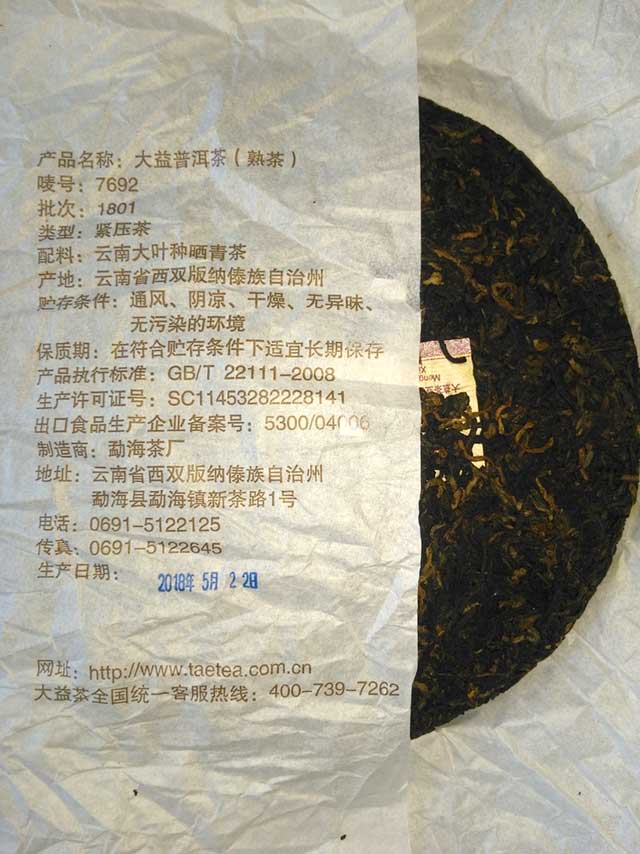 产品名称：大益普洱茶（熟茶）
唛号：7692
批次：1801
类型：紧压茶
配料：云南大叶种晒青茶
产地：云南省西双版纳傣族自治州
贮存条件：通风、阴凉、干燥、无异味、
无污染的环境
保质期：在符合贮存条件下适宜长期保存
产品执行标准：GB/T 22111-2008
生产许可证号：SC11453282228141
出口食品生产企业备案号：5300/04006
制造商：勐海茶厂
地址：云南省西双版纳傣族自治州
勐海县勐海镇新茶路1号
电话：0691-5122125
传真：0691-5122645
生产日期：2018年5月22日
网址：http://www.taetea.com.cn
大益茶全国统一客服热线：400-739-7262
大益茶
Meng